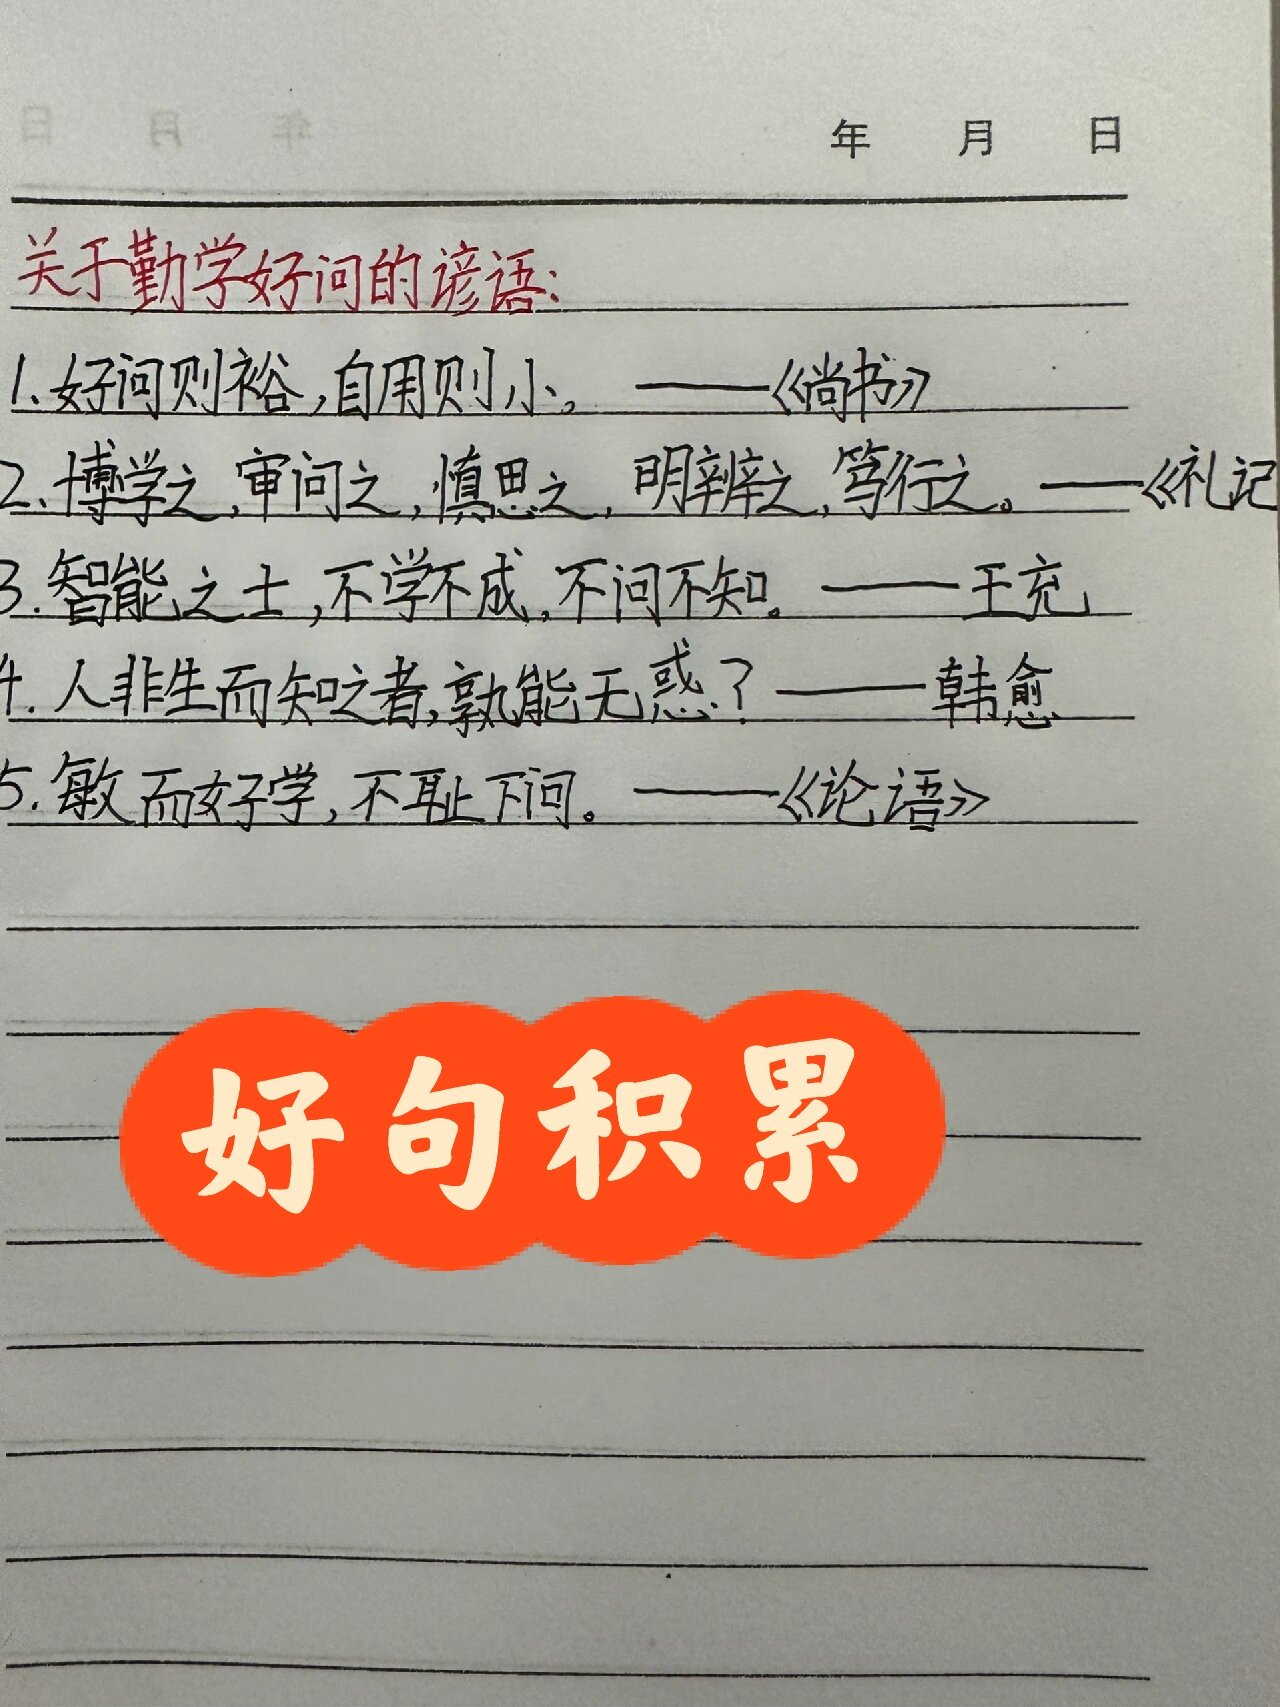 年 月 日
关于勤学好问的谚语:
1.好问则裕,自用则小。——《尚书》
2.博学之,审问之,慎思之,明辨之,笃行之。——《礼记
3.智能之士,不学不成,不问不知。——王充
4.人非生而知之者,孰能无惑?——韩愈
5.敏而好学,不耻下问。——《论语》
好句积累